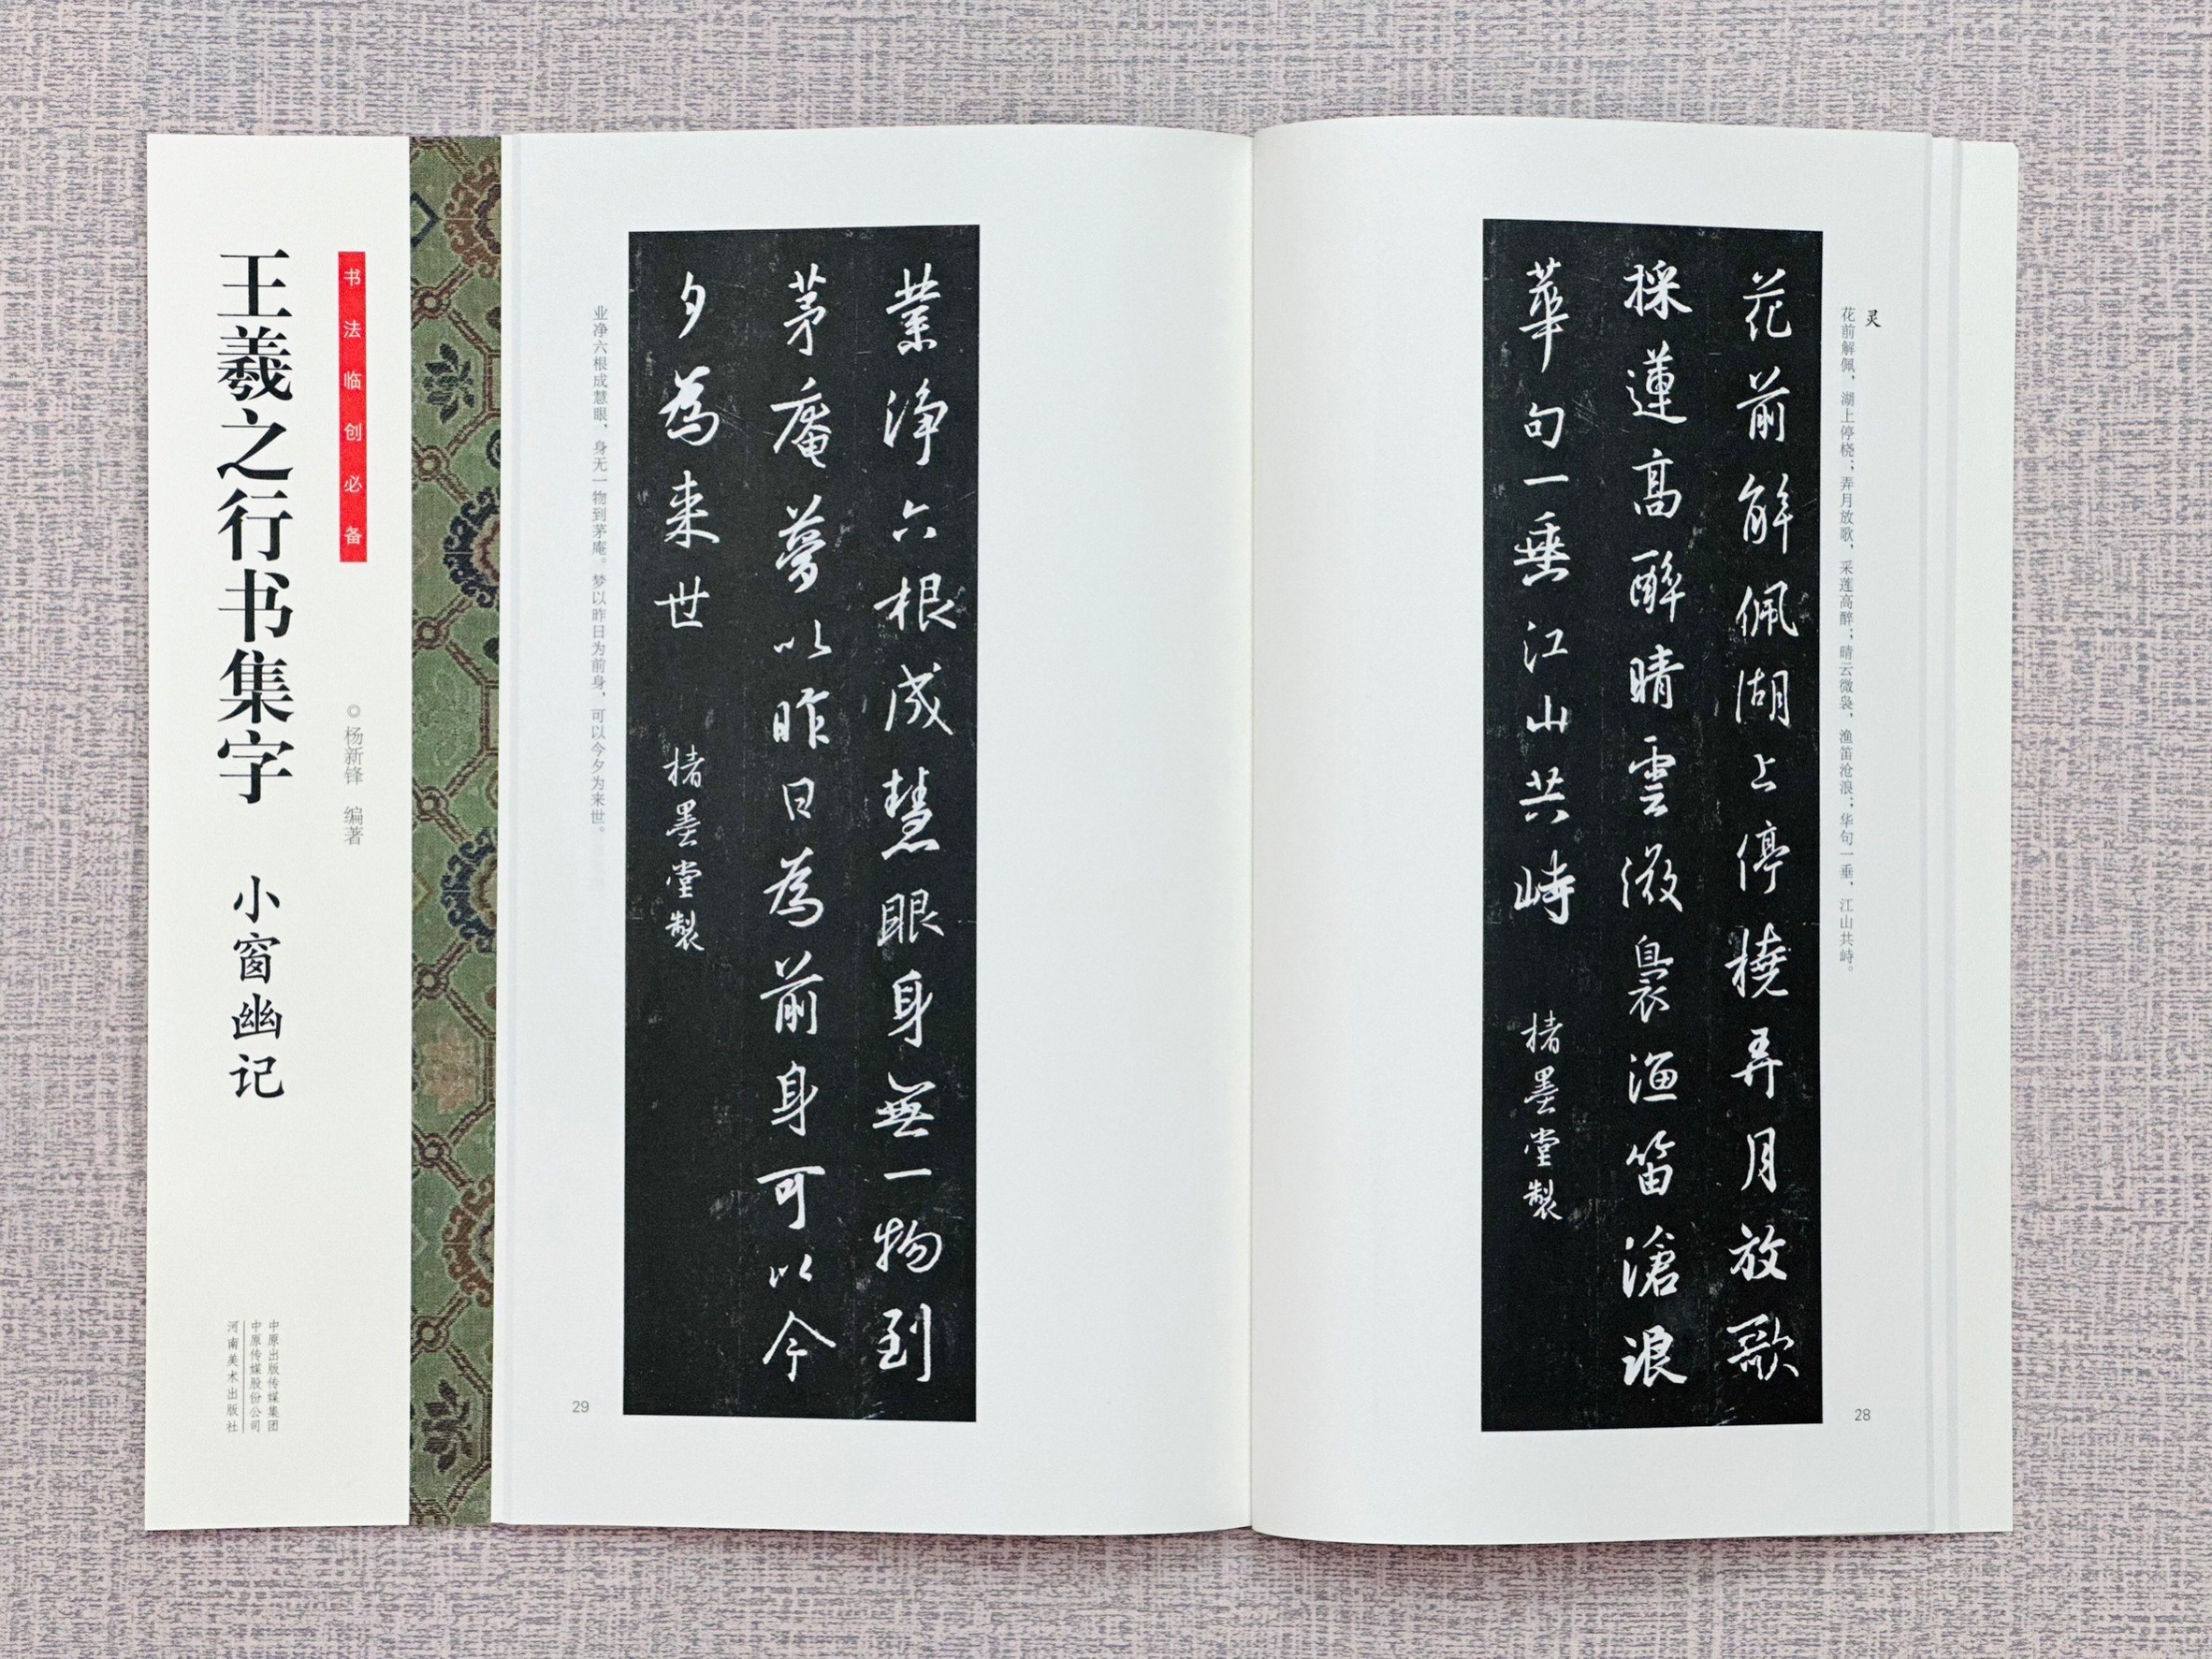 灵
花前解佩，湖上停桡；弄月放歌，采莲高醉；晴云微袅，渔笛沧浪；华句一垂，江山共峙。
花前解佩湖上停橈弄月放歌
採蓮高醉晴雲微裊漁笛滄浪
華句一垂江山共峙
楮墨堂製
28
業淨六根成慧眼身無一物到
茅庵夢以昨日為前身可以今
夕為来世
楮墨堂製
业净六根成慧眼，身无一物到茅庵。梦以昨日为前身，可以今夕为来世。
29
书法临创必备
◎杨新锋 编著
王羲之行书集字 小窗幽记
中原出版传媒集团
中原传媒股份公司
河南美术出版社